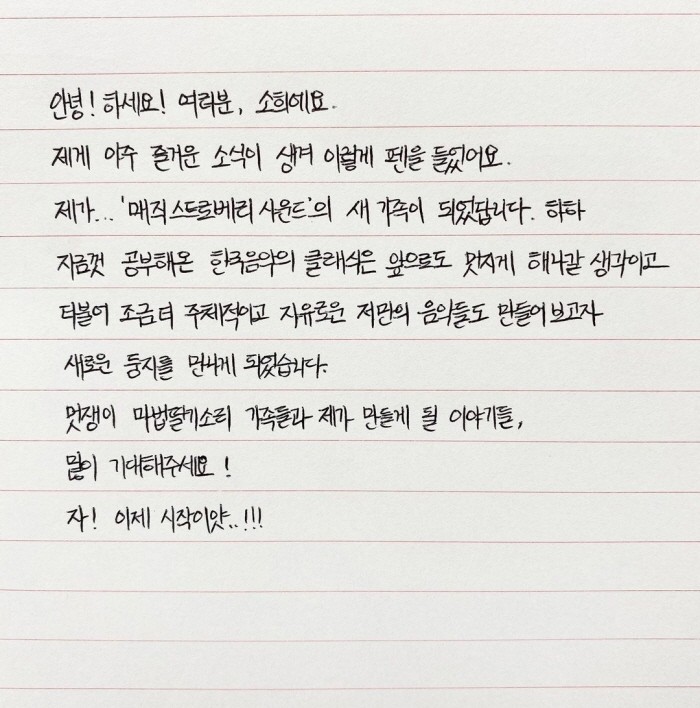 안녕! 하세요! 여러분, 소희예요.
제게 아주 즐거운 소식이 생겨 이렇게 펜을 들었어요.
제가... '매직스트로베리사운드'의 새 가족이 되었답니다. 하하
지금껏 공부해온 한국음악의 클래식은 앞으로도 멋지게 해나갈 생각이고
더불어 조금 더 주체적이고 자유로운 저만의 음악들도 만들어보고자
새로운 둥지를 만나게 되었습니다.
멋쟁이 마법딸기소리 가족들과 제가 만들게 될 이야기들,
많이 기대해주세요!
자! 이제 시작이얏..!!!